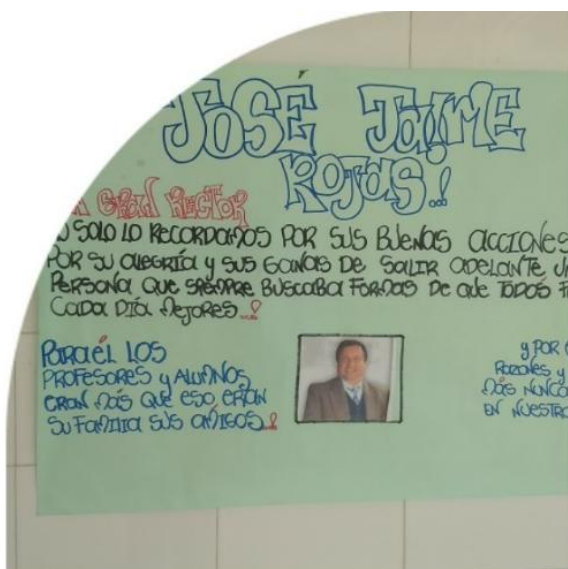 JOSÉ JAIME
ROJAS..!
GRAN RECTOR
SOLO LO RECORDAMOS POR SUS BUENAS ACCIONES
POR SU ALEGRÍA y SUS GANAS DE SALIR ADELANTE
PERSONA QUE SIEMPRE BUSCABA FORMAS DE QUE TODOS
CADA DÍA MEJORES..!
PARA ÉL LOS
PROFESORES y ALUMNOS
ERAN MÁS QUE ESO, ERAN
SU FAMILIA SUS AMIGOS..!
y POR
RAZONES y
MÁS NUNCA
EN NUESTRO